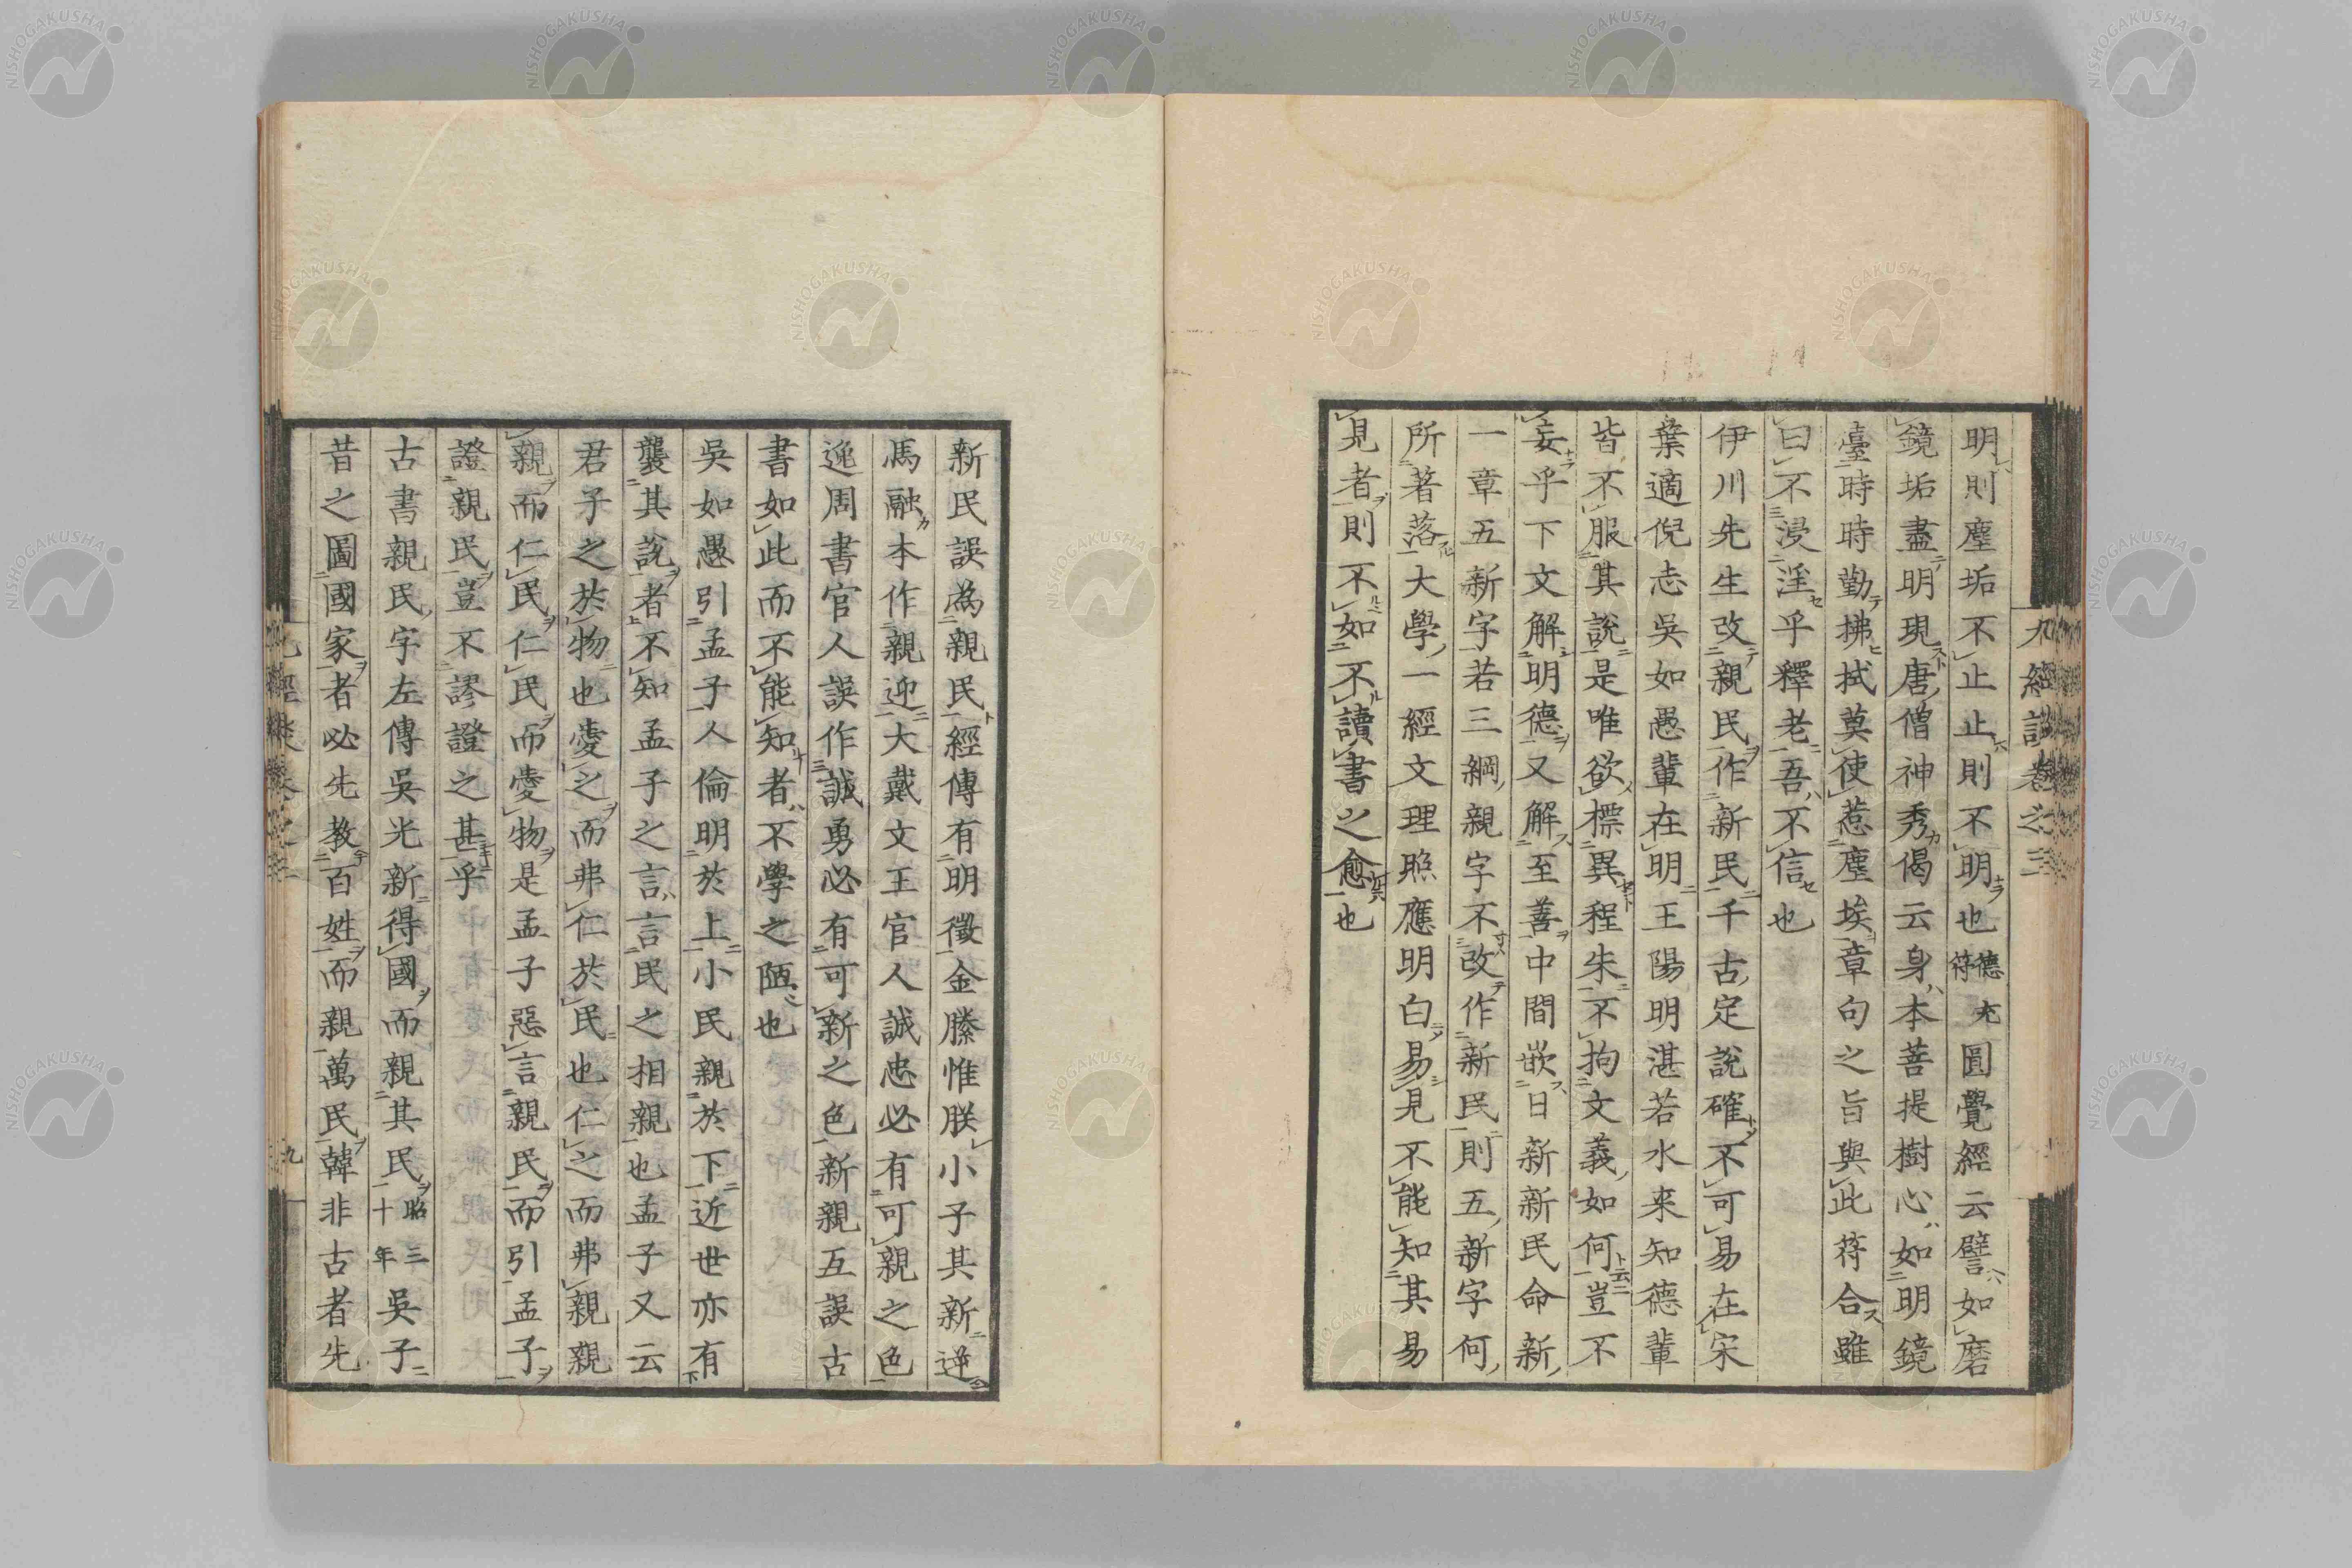 九經談卷之三
明則塵垢不止止則不明也德充符圓覺經云譬如磨
鏡垢盡明現唐僧神秀偈云身本菩提樹心如明鏡
臺時時勤拂拭莫使惹塵埃章句之旨與此符合雖
曰不浸淫乎釋老吾不信也
伊川先生改親民作新民千古定說確不可易在宋
葉適倪志吳如愚輩在明王陽明湛若水来知德輩
皆不服其說是唯欲標異程朱不拘文義如何豈不
妄乎下文解明德又解至善中間嵌日新新民命新
一章五新字若三綱親字不改作新民則五新字何
所著落大學一經文理照應明白易見不能知其易
見者則不如不讀書之愈也
新民誤為親民經傳有明徵金縢惟朕小子其新逆
馬融本作親迎大戴文王官人誠忠必有可親之色
逸周書官人誤作誠勇必有可新之色新親互誤古
書如此而不能知者不學之陋也
吳如愚引孟子人倫明於上小民親於下近世亦有
襲其說者不知孟子之言言民之相親也孟子又云
君子之於物也愛之而弗仁於民也仁之而弗親親
親而仁民仁民而愛物是孟子惡言親民而引孟子
證親民豈不謬證之甚乎
古書親民字左傳吳光新得國而親其民昭三十年吳子
昔之圖國家者必先教百姓而親萬民韓非古者先
九
NISHOGAKUSHA